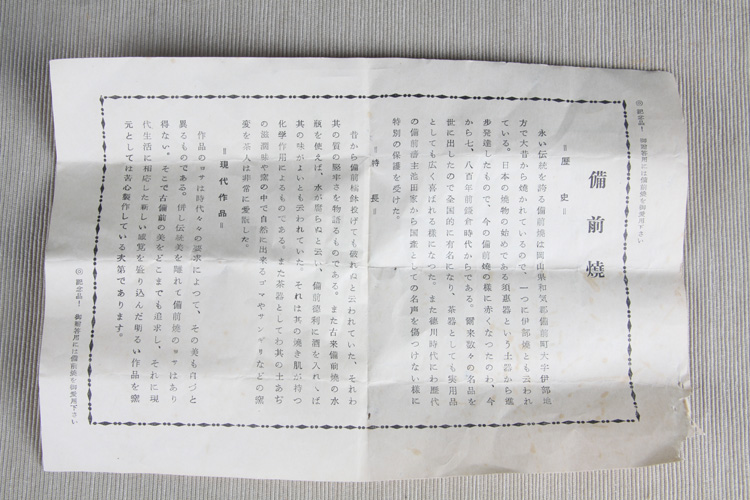 ㊝ 記念品! 御贈答用には備前焼を御愛用下さい
備前燒
=歴史=
永い伝統を誇る備前燒は岡山県和気郡備前町大字伊部地
方で大昔から燒かれているので、一つに伊部燒とも云われ
ている。日本の燒物の始めである須惠器という土器から進
步発達したもので、今の備前燒の様に赤くなつたのわ、今
から七、八百年前鎌倉時代からである。爾来数々の名品を
世に出したので全国的に有名になり、茶器としても実用品
としても広く喜ばれる様になつた。また徳川時代にわ歴代
の備前藩主池田家から国産としての名声を傷つけない様に
特別の保護を受けた。
=特長=
昔から備前擂鉢投げても破れぬと云われていた、それわ
其の質の堅牢さを物語るものである。また古来備前燒の水
瓶を使えば、水が腐らぬと云い、備前徳利に酒を入れゝば
其の味がよいとも云われていた。それは其の燒き肌が持つ
化学作用によるものである。また茶器としてわ其の土あぢ
の滋潤味や窯の中で自然に出来るゴマやサンギリなどの窯
変を茶人は非常に愛玩した。
=現代作品=
作品のヨサは時代々々の要求によつて、その美も自づと
異るものである。併し伝統美を離れて備前燒のヨサはあり
得ない。そこで古備前の美をどこまでも追求し、それに現
代生活に相応した新しい感覚を盛り込んだ明るい作品を窯
元としては苦心製作している次第であります。
記念品! 御贈答用には備前燒を御愛用下さい